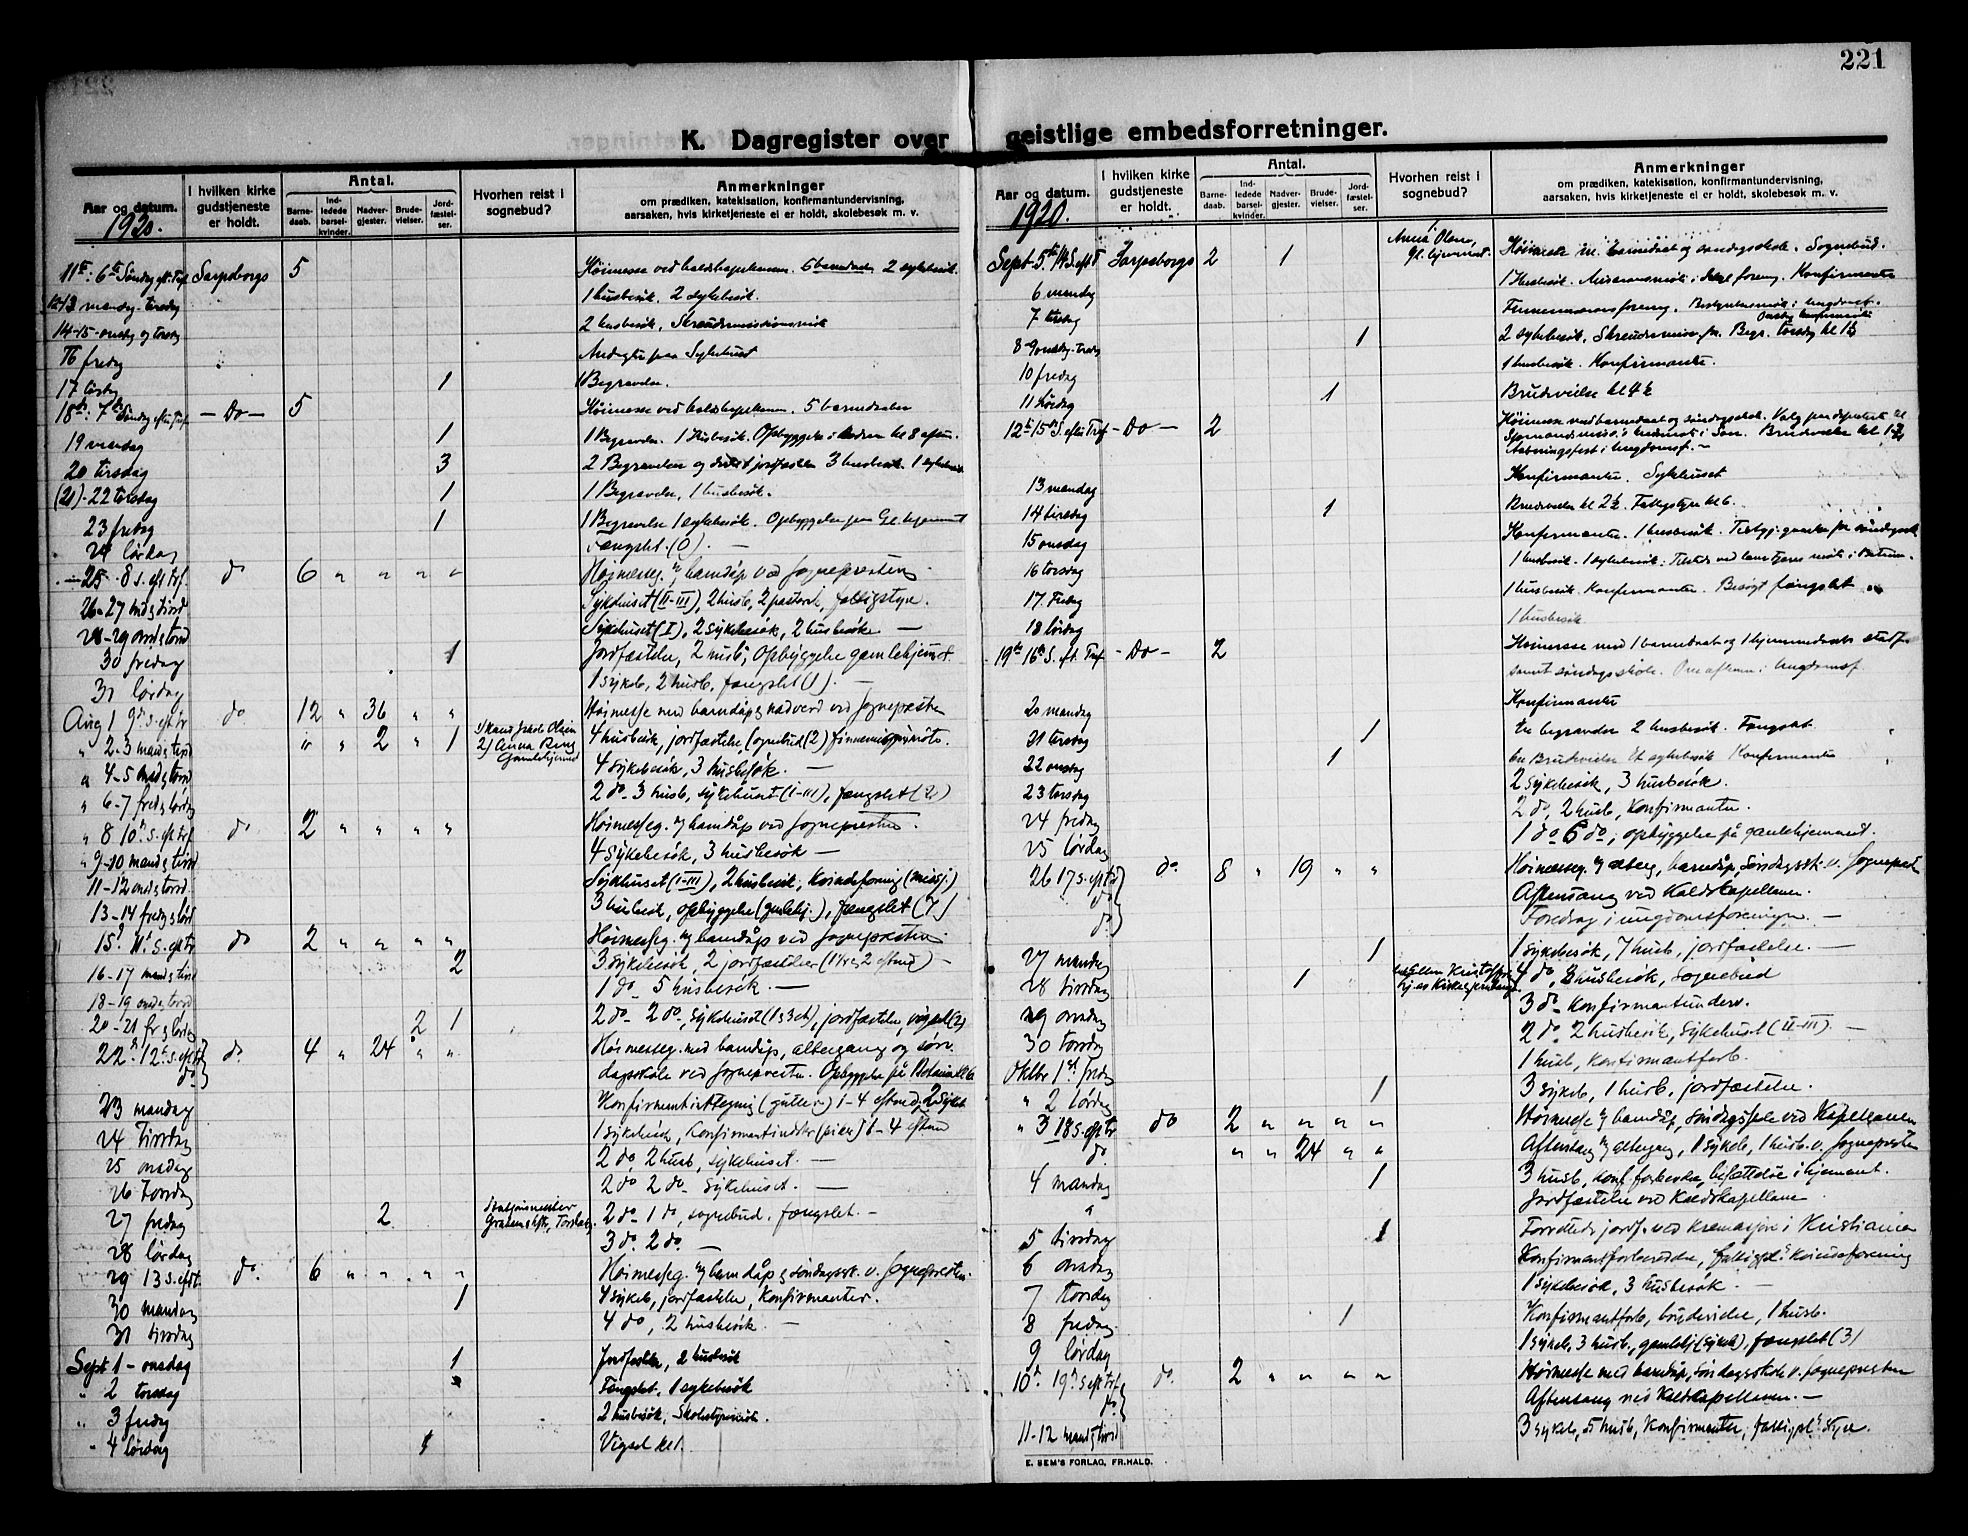 221
K. Dagregister over geistlige embedsforretninger.
Aar og datum.
1920.
I hvilken kirke gudstjeneste er holdt.
Antal.
Barnedaab.
Indledede barselkvinder.
Nadvergjester.
Brudevielser.
Jordfæstelser.
Hvorhen reist i sognebud?
Anmerkninger
om prædiken, katekisation, konfirmantundervisning,
aarsaken, hvis kirketjeneste ei er holdt, skolebesøk m. v.
11te: 6te Søndag eft. Tref. Sarpsborgs 5 Høimesse ved 5 barnedaab. 2 sykebesøk.
12-13 mandag-tirsdag 1 husbesøk. 2 sykebesøk.
14-15 onsdag og torsdag 2 husbesøk.
16 fredag Andagt paa Sykehuset
17 lørdag 1 1 Begravelse.
18de: 7de Søndag efter Tref. - Do - 5 Høimesse ved 5 barnedaaber
19 mandag 1 1 Begravelse. 1 Husbesøk. Opbyggelse kl 8 aften.
20 tirsdag 3 2 Begravelser og 3 husbesøk. 1 sykebesøk
(21)-22 torsdag 1 1 Begravelse, 1 husbesøk.
23 fredag 1 1 Begravelse 1 sykebesøk. Opbyggelse paa Gl. hjemmet
24 lørdag Fængslet (0). —
- 25 8 s. eft trf. do 6 " " " " Høimesseg. m/ barndåp ved sognepresten.
26-27 mnd & tirsd Sykehuset (II-III), 2 husb, 2 fattigstyre.
28-29 onsd & torsd Sykehuset (I), 2 sykebesøk, 2 husbesøk —
30 fredag 1 Jordfæstelse, 2 husb, Opbyggelse gamlehjemmet.
31 lørdag 1 sykeb, 2 husb, fængslet (1). —
Aug 1 9de s. eft tr do 12 " 36 " " Høimesse med barndåp & nadverd ved sognepresten
" 2-3 mand & tirsd " " 2 " 1 2) Anna Ring Gamlehjemmet 4 husbesøk, jordfæstelse, sognebud (2)
" 4-5 onsd & torsd 4 sykebesøk, 3 husbesøk. —
" 6-7 fred & lørdag 2 do - 3 husb, sykehuset (I-III), fængslet (2)
" 8 10de s. eft trf. do 2 " " " " Høimesseg. m/ barndåp ved sognepresten.
" 9-10 mand & tirsd 4 sykebesøk, 3 husbesøk —
11-12 onsd & torsd Sykehuset (I-III), 2 husbesøk, kvindeforening (misj.)
13-14 fred & lørd 3 husbesøk, opbyggelse (gamlehj.), fængslet
15. 11te s. eft tr do 2 " " " " Høimesseg. m/ barndåp ved sognepresten.
16-17 mand & tirsd 2 3 sykebesøk, 2 jordfæstelser
18-19 onsd & torsd 1 do 5 husbesøk. —
20-21 fr & lørdag 2 1 2 do - 2 do -, sykehuset, jordfæstelse, vigsel (2)
22. 12te s. eft tr do. 4 " 24 " " Høimesseg. med barndåp, altergang og søn-
do dagsskole ved sognepresten. Opbyggelse på
23 mandag Konfirmantindtegning (gutter) 1-4 eftmd, 2 sykeb
24 tirsdag 1 sykebesøk, Konfirmantindskr (piker) 1-4 eftmd
25 onsdag 2 do, 2 husb, sykehuset. —
26 torsdag 2 do 2 do - Sykehuset. —
27 fredag 2 Stasjonsmester 2 do - 1 do, sognebud, fængslet. —
28 lørdag 3 do. 2 do. —
29 13 s. eft tr. do. 6 " " " " Høimesseg. m/ barndåp & søndagssk. v. sognepresten.
30 mandag 1 4 sykeb, jordfæstelse, konfirmanter.
31 tirsdag 4 do, 2 husbesøk —
Sept 1 - onsdag 1 Jordfæstelse, 2 husbesøk
" 2 torsdag Fængslet, 1 sykebesøk
" 3 fredag 2 husbesøk, Skolestyremøte.
" 4 lørdag 1 Vigsel kl 1.
Aar og datum.
1920.
I hvilken kirke gudstjeneste er holdt.
Antal.
Barnedaab.
Indledede barselkvinder.
Nadvergjester.
Brudevielser.
Jordfæstelser.
Hvorhen reist i sognebud?
Anmerkninger
om prædiken, katekisation, konfirmantundervisning,
aarsaken, hvis kirketjeneste ei er holdt, skolebesøk m. v.
Sept 5te 14 S. eft T Sarpsborgs 2 1 Anna Olsen, Gl. hjemmet. Høimesse m. barnedaab og søndagsskole. Sognebud.
6 mandag 1 Husbesøk. Konfirmanter
7 tirsdag i ungdomsf.
8-9 onsdag-torsdag 1 2 sykebesøk, Begr. torsdag kl 1½
10 fredag 1 husbesøk. Konfirmanter.
11 Lørdag 1 Brudevielse kl 4½
12te 15de S. efter Tref - Do - 2 Høimesse ved barnedaab og søndagsskole. Valg
Brudevielse kl
Aabningsfest i Ungdomsf. —
13 mandag Konfirmanter. Sykehuset
14 tirsdag 1 Brudevielse kl 2½. Fattigstyre kl 6.
15 onsdag Konfirmanter. 1 husbesøk.
16 torsdag 1 husbesøk. 1 sykebesøk.
17. Fredag 1 husbesøk. Konfirmanter. Besøgt fængslet
18 lørdag 1 husbesøk
19de 16de S. eft. Tref - Do - 2 Høimesse med 1 barnedaab og 1 hjemmedaab stadf.
samt søndagsskole. Om aftenen i Ungdomsf.
20 mandag Konfirmanter
21 tirsdag 1 En begravelse 2 husbesøk. Fængslet
22 onsdag 1 En Brudevielse Et sykebesøk Konfirmanter
23 torsdag 2 sykebesøk, 3 husbesøk.
24 fredag 2 do, 2 husb, Konfirmanter.
25 lørdag 1 do 6 do, opbyggelse på gamlehjemmet.
26 17 s. eft tr do. 8 " 19 " " Høimesseg. m/ alterg, barndåp, søndagssk. v. sognepresten
do Aftensang ved Kaldskapellanen.
do Foredrag i ungdomsforeningen. —
27 mandag 1 1 sykebesøk, 7 husb, jordfæstelse. —
28 tirsdag 1 4 do, 3 husbesøk, sognebud
29 onsdag 3 do - Konfirmantunderv.
30 torsdag 2 do. 2 husbesøk, sykehuset (II-III). —
Oktbr 1ste fredag 1 husb, konfirmantforb.
" 2 lørdag 1 3 sykeb, 1 husb, jordfæstelse.
" 3 18 s. eft tr do 2 " " " " Høimesse m/ barndåp, søndagsskole ved Kapellanen
do. " " 24 " " Aftensang m/ altergang, 1 sykeb, 1 husb. v. sognepresten
4 mandag 1 3 husb, konf forberedelse, i hjemmet.
" Jordfæstelse ved Kaldskapellanen
5 tirsdag 1 jordf. ved kremasjon i Kristiania
6 onsdag Konfirmantforberedelse, kvindeforening
7 torsdag 1 sykebesøk, 3 husbesøk. —
8 fredag 1 Konfirmantforb, brudevielse, 1 husb.
9 lørdag 1 sykeb, 3 husb, gamlehj (sykeb), fængslet (3)
10de 19de s. eft trf do. 2 " " " " Høimesse med barndåp, søndagsskole v. sognepresten
do Aftensang ved Kaldskapellanen. —
11-12 mand & tirsd 3 sykeb, 5 husb, Konfirmanter,
E. SEM'S FORLAG, FR.HALD.